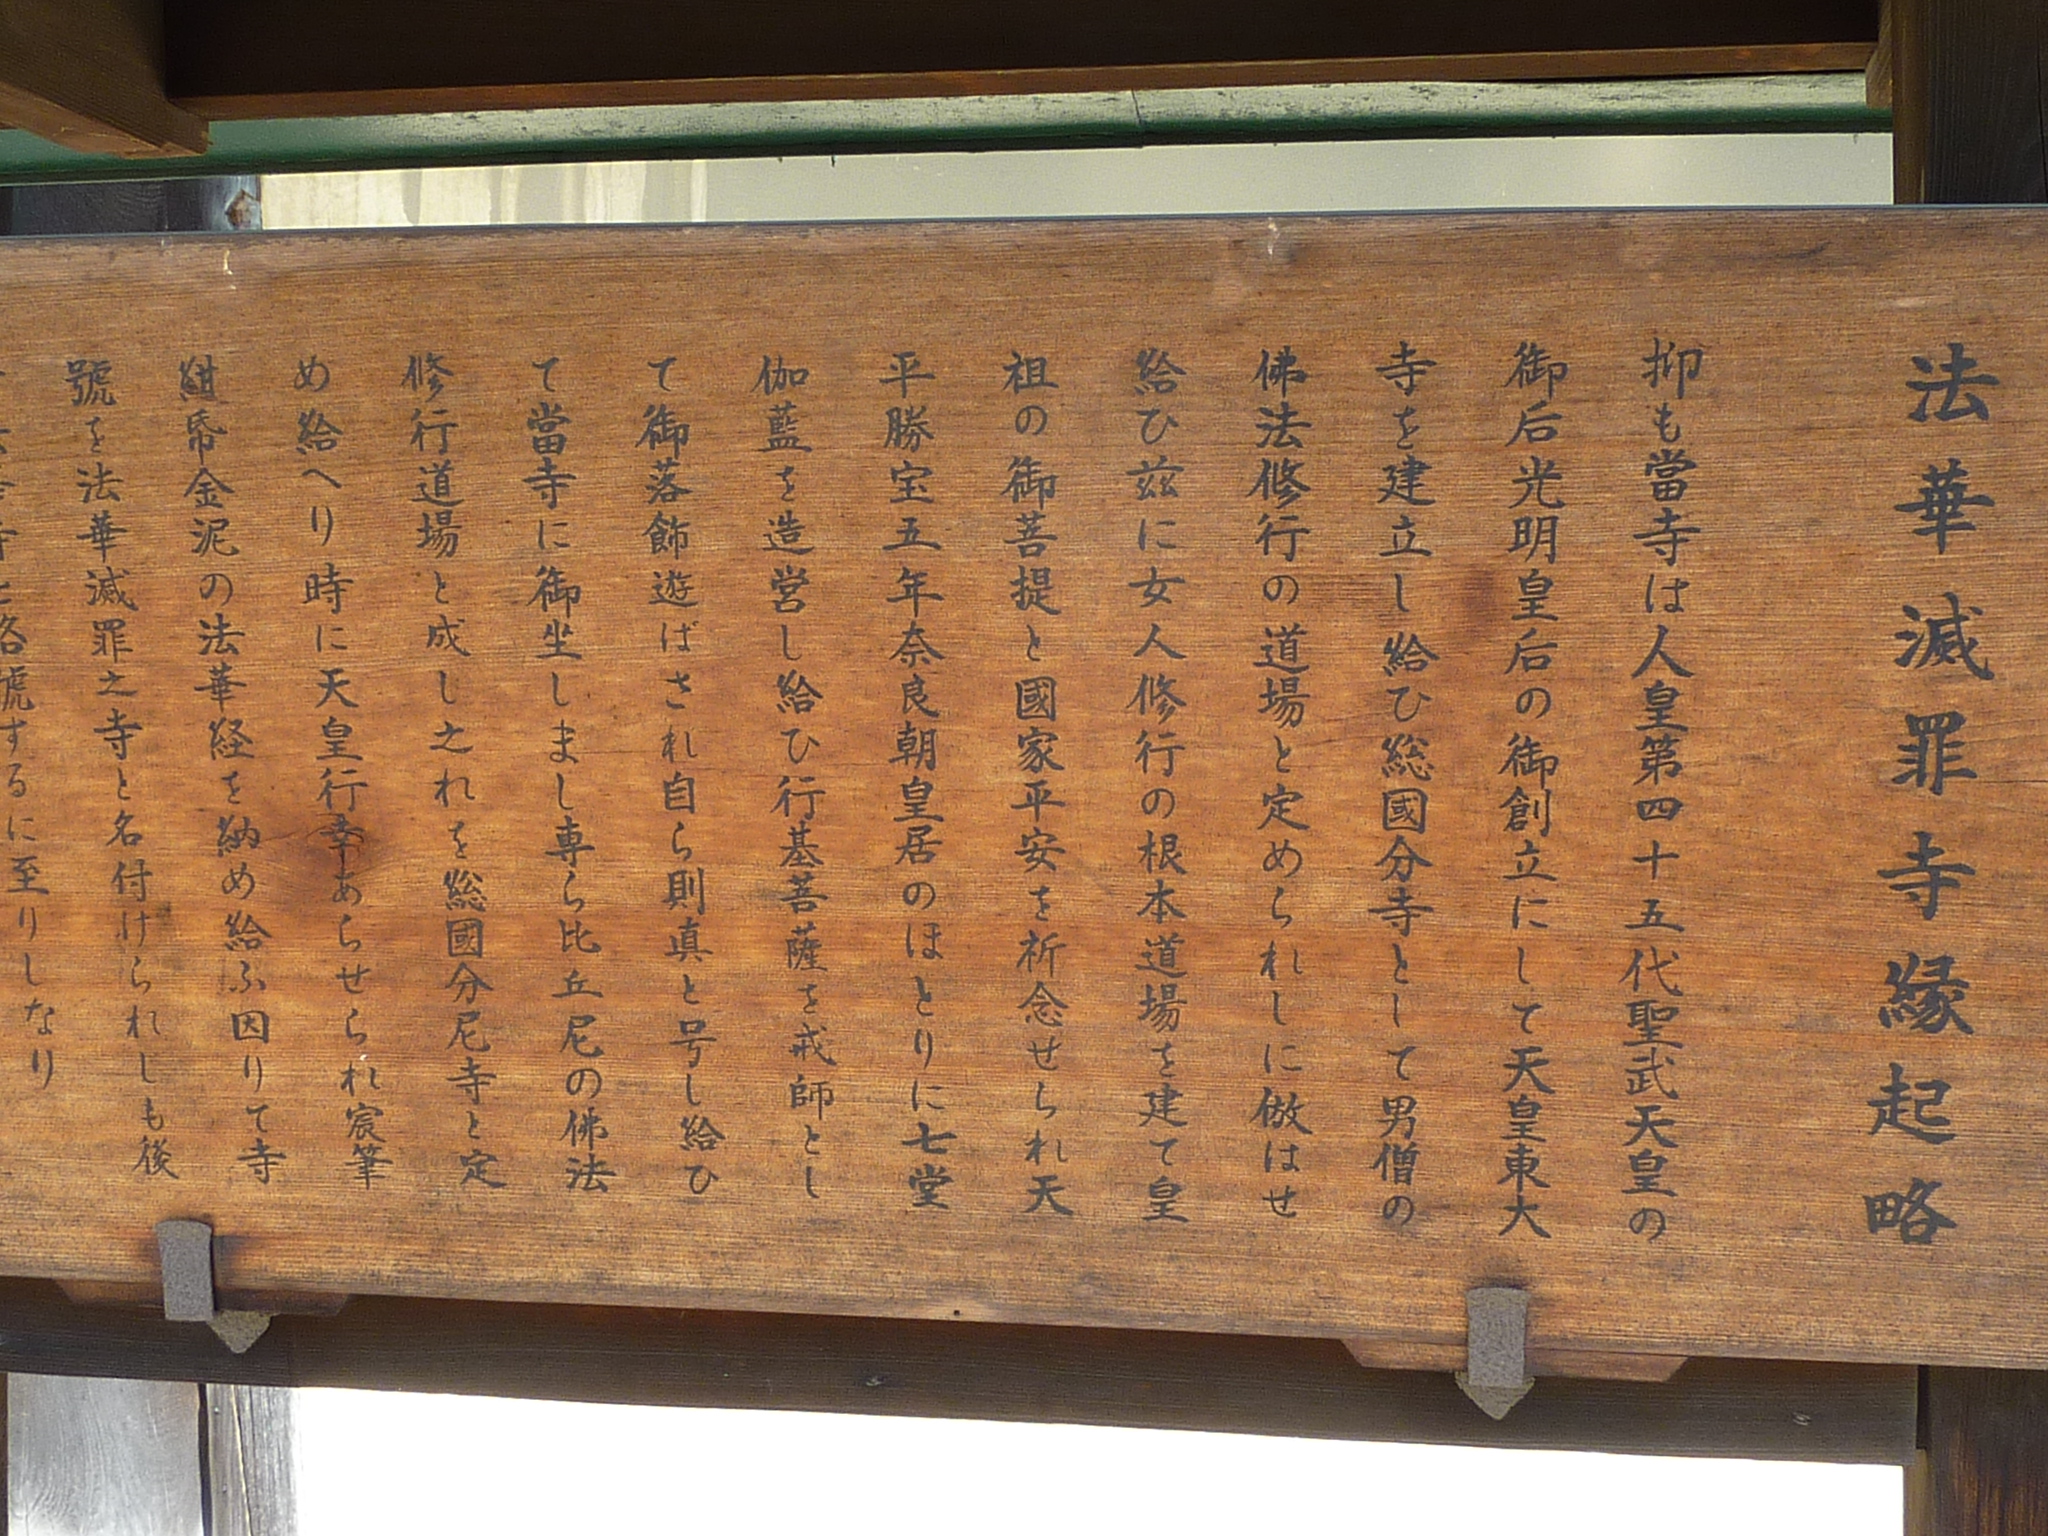 法華滅罪寺縁起略
抑も當寺は人皇第四十五代聖武天皇の
御后光明皇后の御創立にして天皇東大
寺を建立し給ひ総國分寺として男僧の
佛法修行の道場と定められしに倣はせ
給ひ茲に女人修行の根本道場を建て皇
祖の御菩提と國家平安を祈念せられ天
平勝宝五年奈良朝皇居のほとりに七堂
伽藍を造営し給ひ行基菩薩を戒師とし
て御落飾遊ばされ自ら則真と号し給ひ
て當寺に御坐しまし専ら比丘尼の佛法
修行道場と成し之れを総國分尼寺と定
め給へり時に天皇行幸あらせられ宸筆
紺帋金泥の法華経を納め給ふ因りて寺
號を法華滅罪之寺と名付けられしも後
寺と略號するに至りしなり